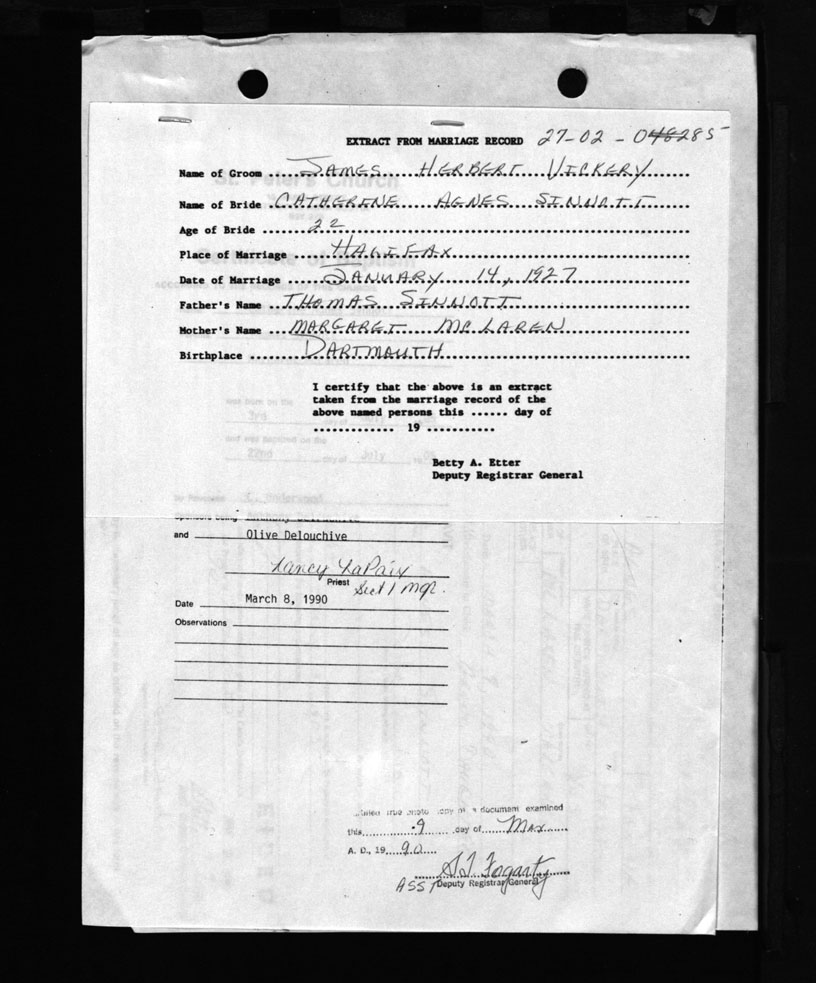 EXTRACT FROM MARRIAGE RECORD 27-02-048285
Name of Groom ..... JAMES HERBERT VICKERY
Name of Bride ..... CATHERINE AGNES SINNOTT
Age of Bride ..... 22
Place of Marriage ..... HALIFAX
Date of Marriage ..... JANUARY 14, 1927
Father's Name ..... THOMAS SINNOTT
Mother's Name ..... MARGARET MCLAREN
Birthplace ..... DARTMOUTH
I certify that the above is an extract
taken from the marriage record of the
above named persons this ...... day of
............. 19 ...........
Betty A. Etter
Deputy Registrar General
St. Peter's Church
Certificate of Baptism
was born on the
3rd
and was baptized on the
22nd day of July
and Olive Delouchive
Nancy LaPaix
Priest
Sect / Mgr.
Date March 8, 1990
Observations
true photo copy of a document examined
this ..... 9 ..... day of ..... Mar .....
A. D., 19 .. 90 ....
Fogarty
ASST Deputy Registrar General